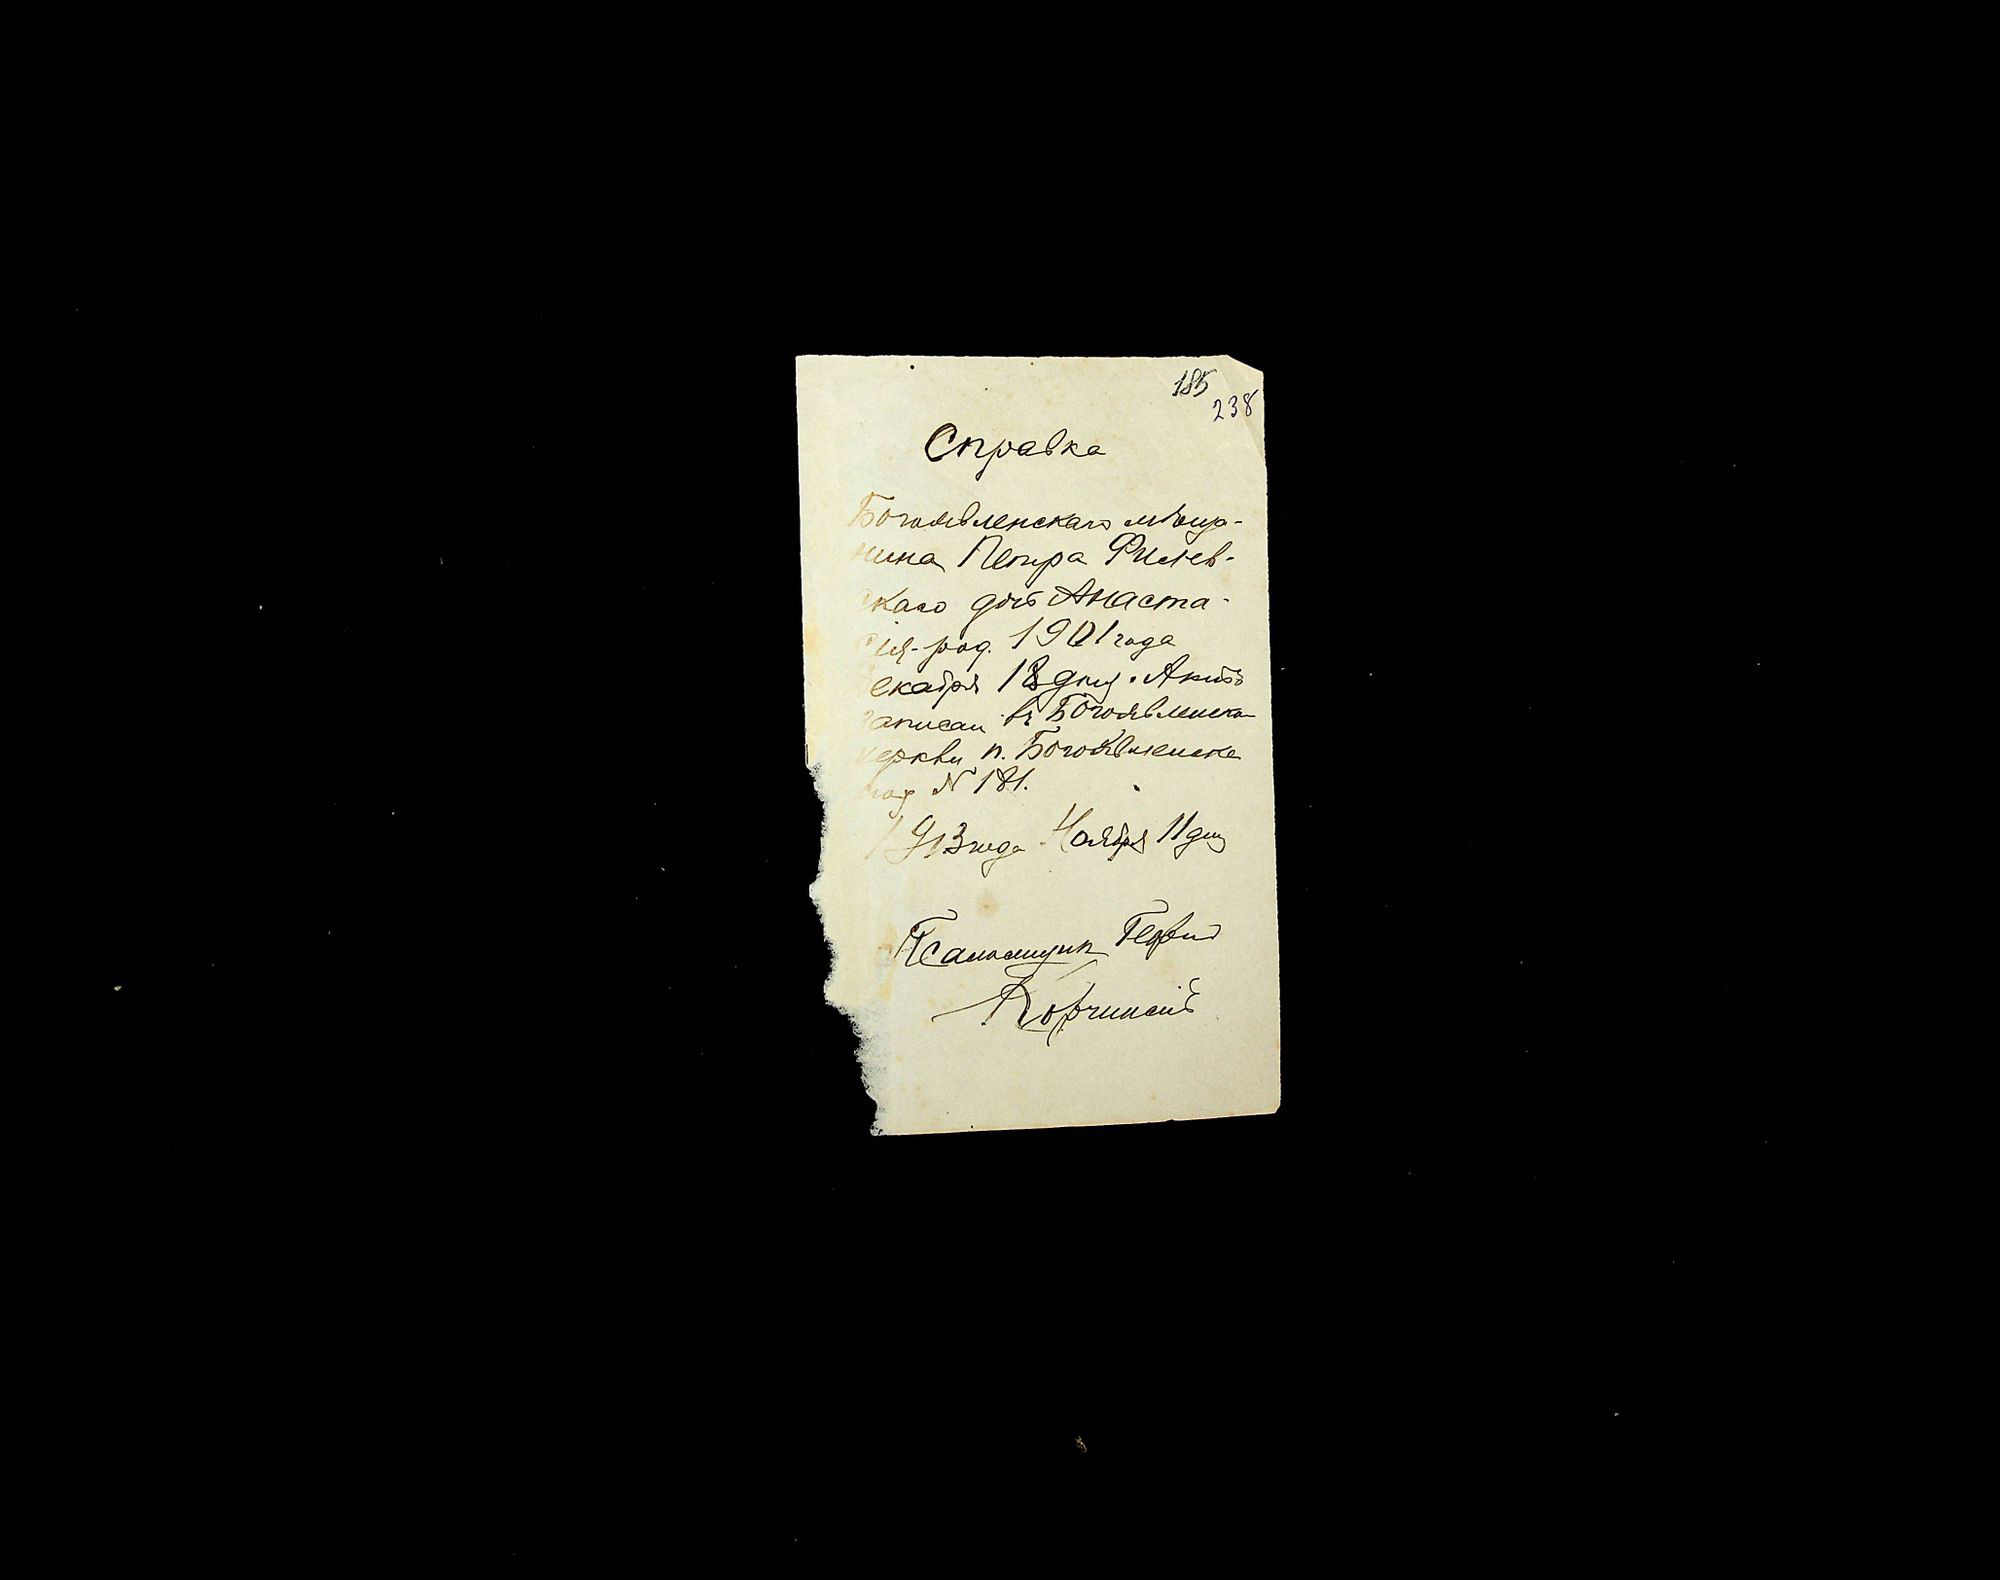 185
238
Справка
Богоявленскаго мѣща-
нина Петра Филев-
скаго дочь Анаста-
сія-род. 1901 года
Декабря 18 дня. Актъ
записан въ Богоявленской
церкви п. Богоявленске
под N 181.
1913 года Ноября 11 дня
Псаломщик Георгій
Корчинскій